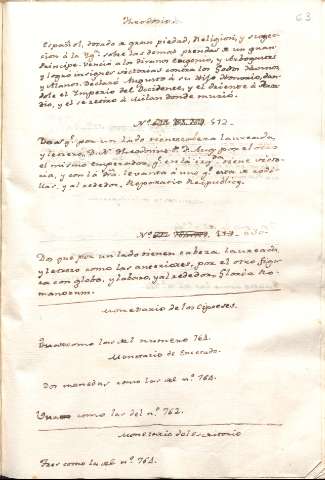 Theodosio
63
Español, dotado de gran piedad, Religion, y sugecion à la Yga sobre las demas prendas de un gran
Principe. Venciò a los tiranos Eugenio, y Arbogastes
y logro insignes victorias contra los Godos, Hunnos,
y Alanos. Declarò Augusto à su Hijo Honorio, dandole el Imperio del Occidente, y el de Oriente à Arcadio, y el se retirò à Milan donde murio.
Nº 512.
Dos qe. por un lado tienen cabeza laureada,
y letrero, D. N. Theodosius P. F. Aug. por el otro
el mismo emperador, qe. en la izqda. tiene victoria, y con la dra. levanta à uno qe. està de rodillas, y alrededor, Reparatio Reipublicę.
Nº
Dos que por un lado tienen cabeza laureada,
y letrero como las anteriores, por el otro figura con globo, y labaro, y alrededor, Gloria Romanorum.
Monetario de los Cipreses.
como las del numero 761.
Monetario de
Dos monedas como las del nº. 761.
como las del nº. 762.
Monetario del escritorio
Tres como las del nº. 761.